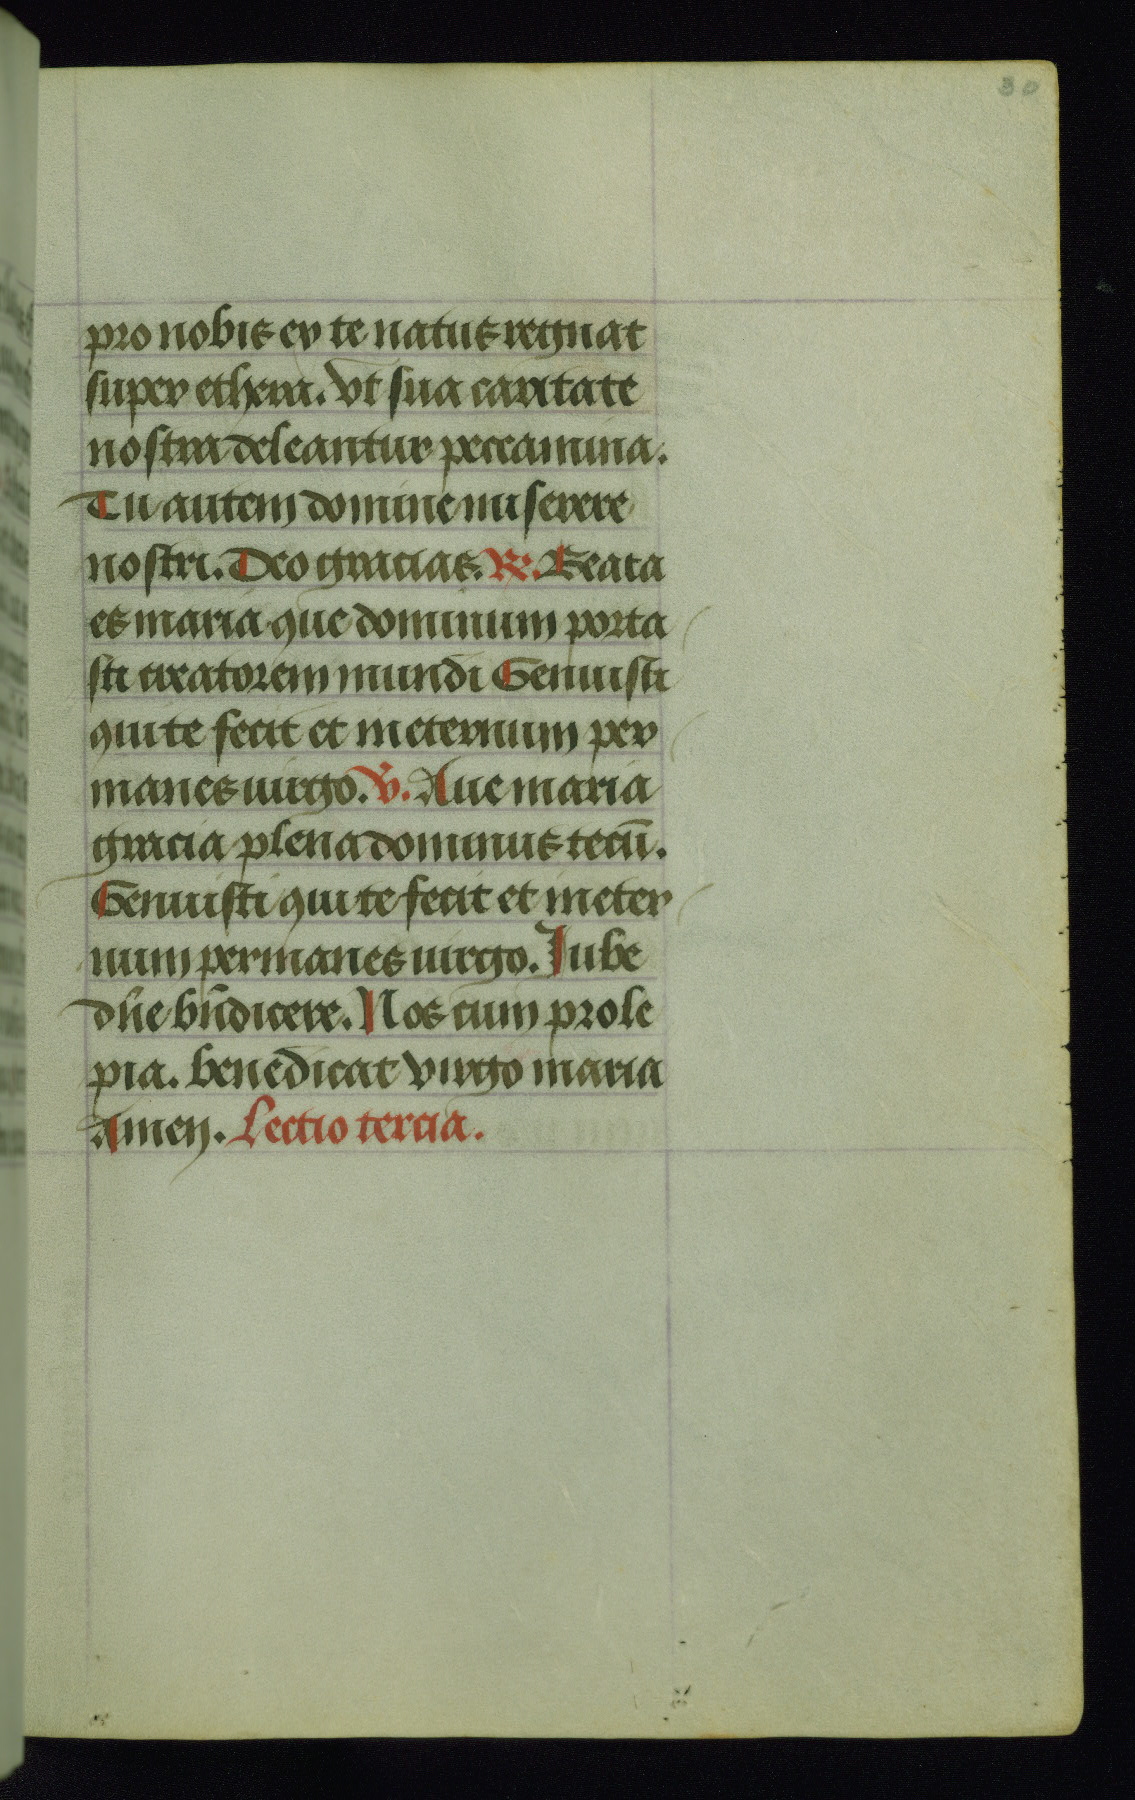 30
pro nobis ex te natus regnat
super ethera. Vt sua caritate
nostra deleantur peccamina.
Tu autem domine miserere
nostri. Deo gracias. R. Beata
es maria que dominum porta
sti creatorem mundi Genuisti
qui te fecit et in eternum per
manes uirgo. V. Aue maria
gracia plena dominus tecū.
Genuisti qui te fecit et in eter
num permanes uirgo. Iube
dn̄e bn̄dicere. Nos cum prole
pia. benedicat virgo maria
Amen. Lectio tercia.